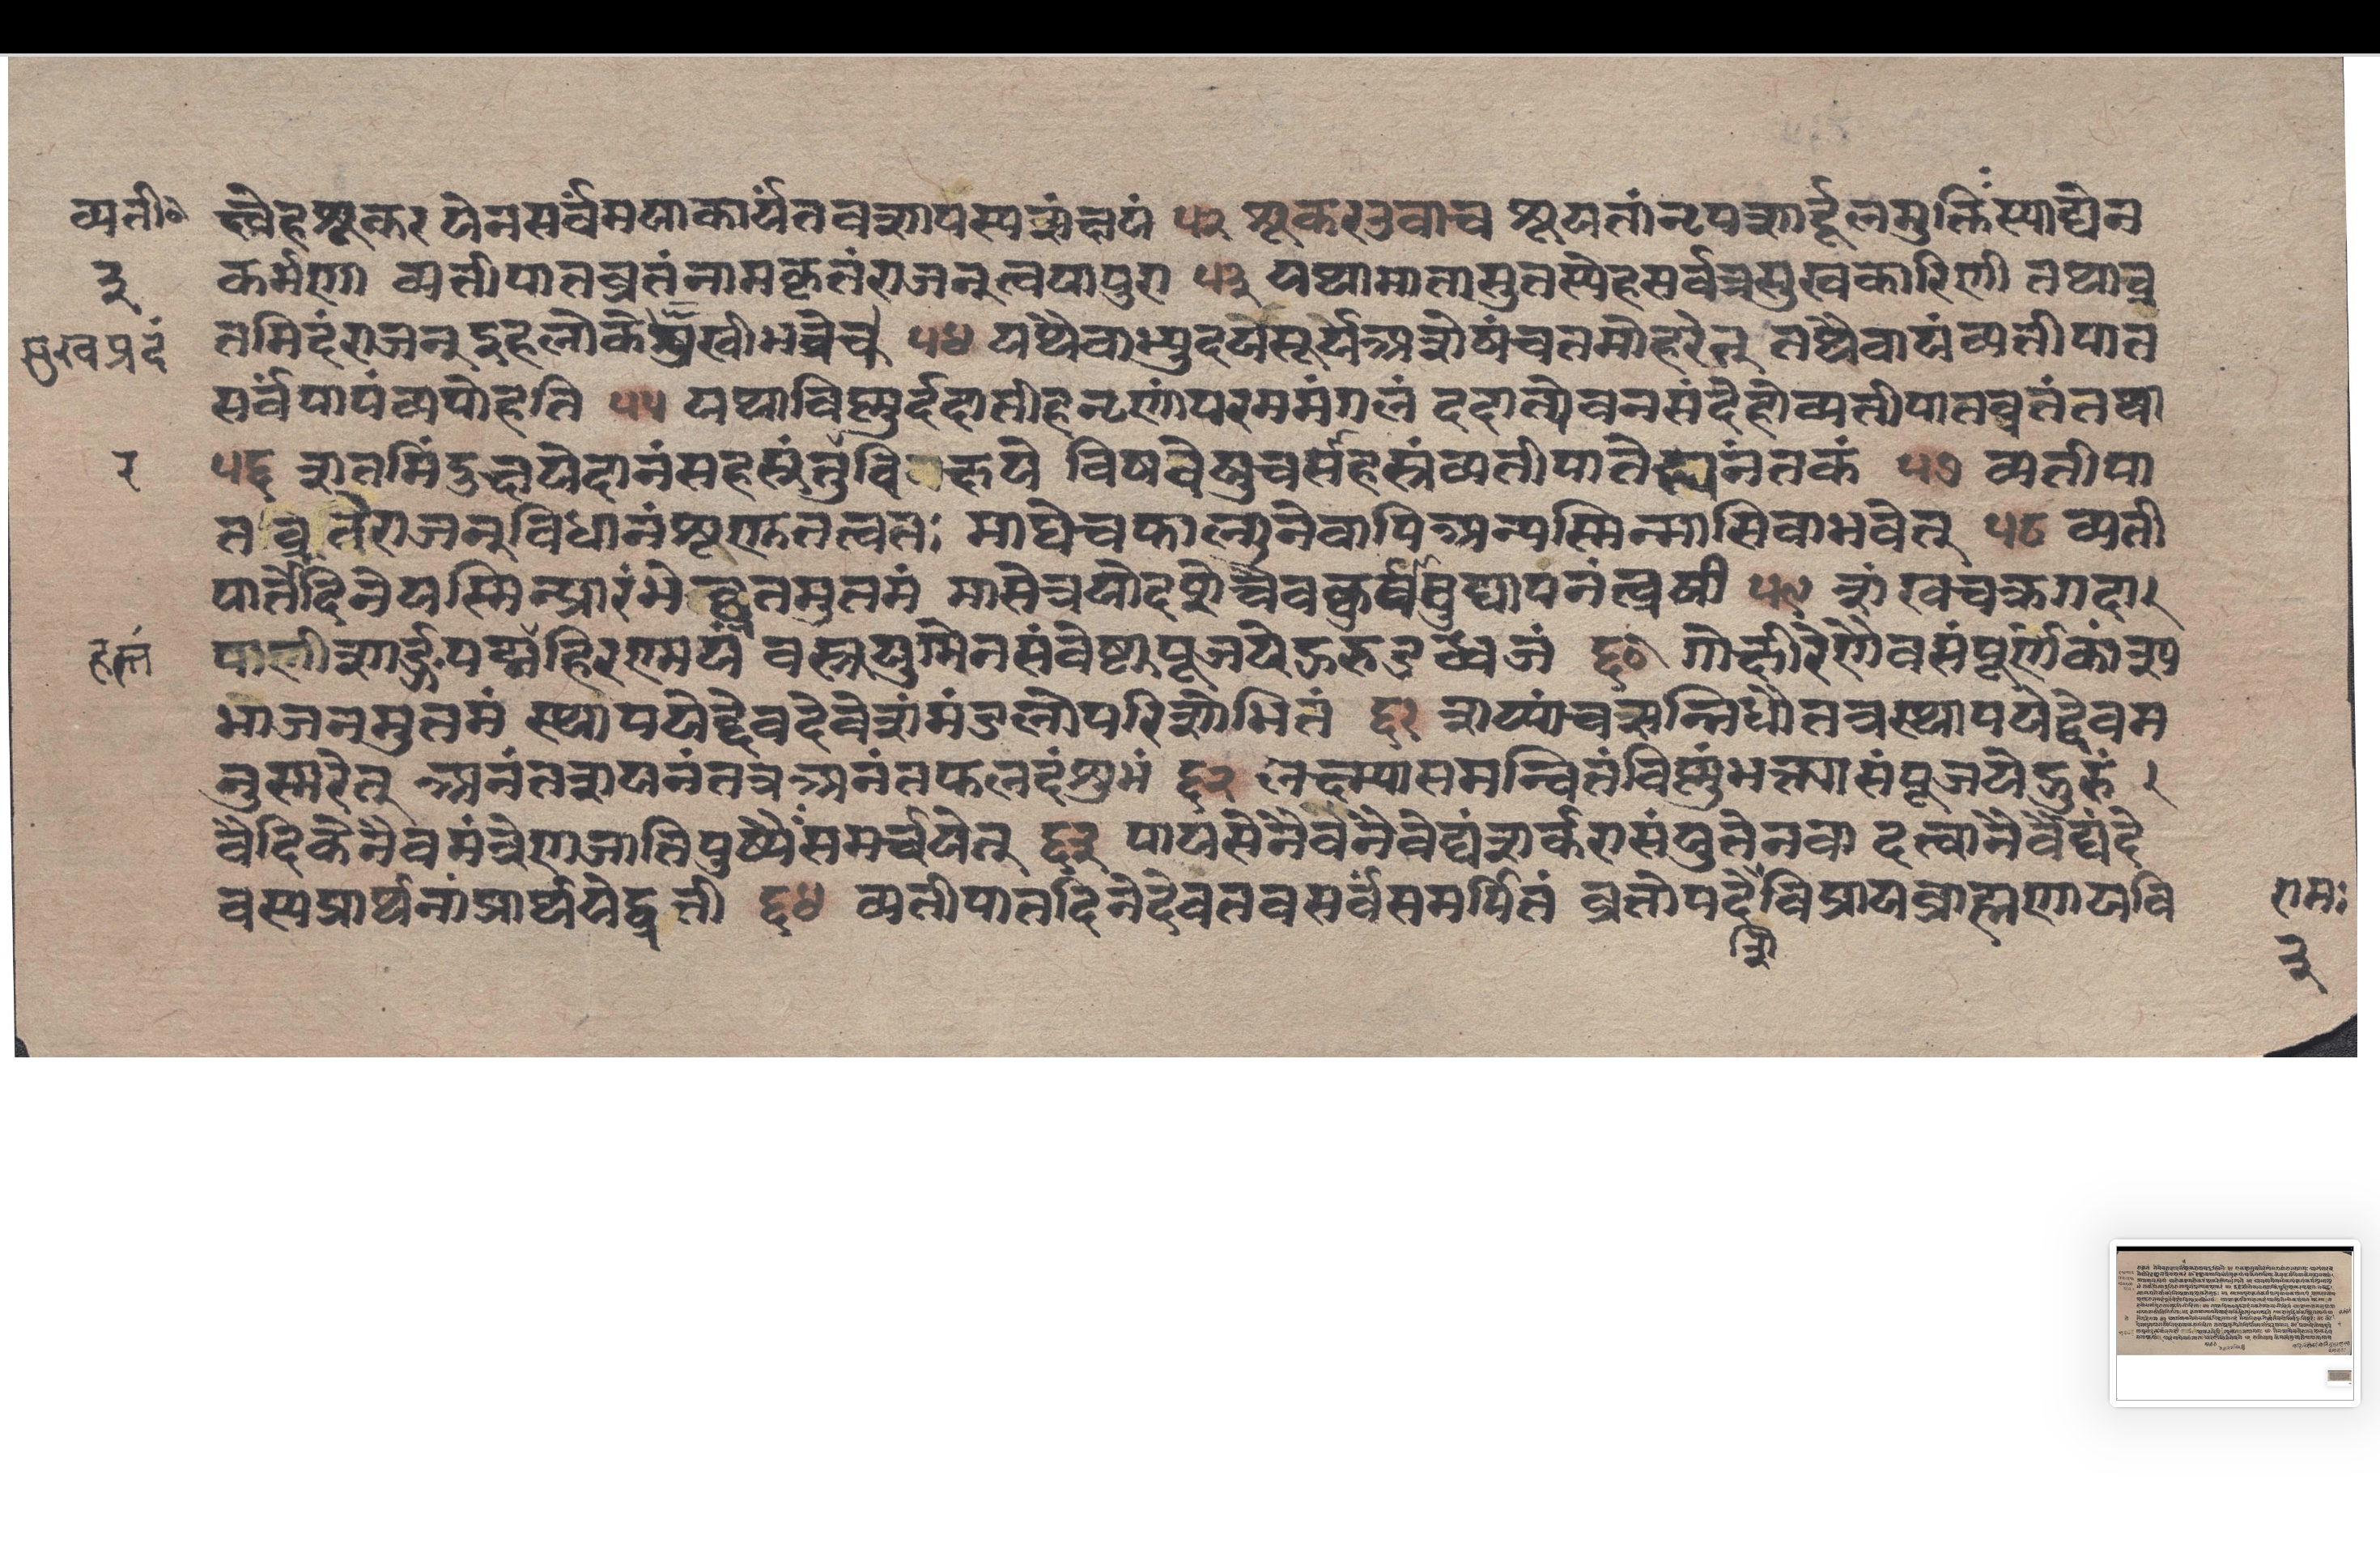 व्यती॰ त्वैह शूकर येन सर्वं मया कार्यं तव शापस्य संक्षयं ५२ शूकर उवाच श्रूयतां नृपशार्दूल मुक्तिः स्याद्येन
३ कर्मणा व्यतीपातव्रतं नाम कृतं राजन् त्वया पुरा ५३ यथा माता सुतस्येह सर्वत्र सुखकारिणी तथा व्र
सुखप्रदं तमिदं राजन् इह लोके भवेच् ५४ यथैवाभ्युदये सूर्य अशेषं च तमो हरेत् तथैवायं व्यतीपात
सर्वपापं व्यपोहति ५५ यथा विष्णुर्ददातीह नृणां परममंगलं ददात्येव न संदेहो व्यतीपातव्रतं तथा
१ ५६ शतमिंदुक्षये दानं सहस्रं तु दिनक्षये विषुवे सहस्रं व्यतीपाते नंतकं ५७ व्यतीपा
त व्रतं राजन् विधानं शृणु तत्वतः माघे च फाल्गुने वापि अन्यस्मिन्मासि वा भवेत् ५८ व्यती
पातदिने यस्मिन् प्रारंभे व्रतमुत्तमं मासे त्रयोदशे चैव कुर्यादुद्यापनं व्रती ५९ शंखचक्रगदा
पाणी शार्ङ्गपद्मं हिरण्मयं वस्त्रयुग्मेन संवेष्ट्य पूजयेद्गरुडध्वजं ६० गोक्षीरेणैव संपूर्णं कांस्य
भाजनमुत्तमं स्थापयेद्देवदेवेशं मंडलोपरिशोभितं ६१ शय्यां च सन्निधौ तत्र स्थापयेद्देवम
नुस्मरेत् अनंतशयनं तत्र अनंतफलदं शुभं ६२ लक्ष्म्या समन्वितं विष्णुं भक्त्या संपूजयेद्गुरुं
वैदिकेनैव मंत्रेण जातिपुष्पैः समर्चयेत् ६३ पायसेनैव नैवेद्यं शर्करासंयुतेन वा दत्वा नैवेद्यं दे
वस्य प्रार्थनां प्रार्थयेद्व्रती ६४ व्यतीपातदिने देव तव सर्वं समर्पितं व्रतोपदे विप्राय ब्राह्मणाय वि रामः
३